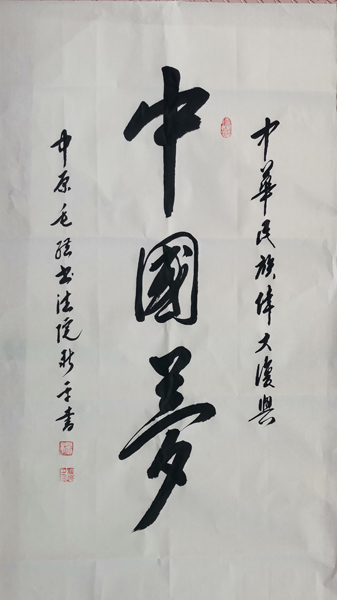 中華民族偉大復興
中國夢
中原毛體书法院新平書